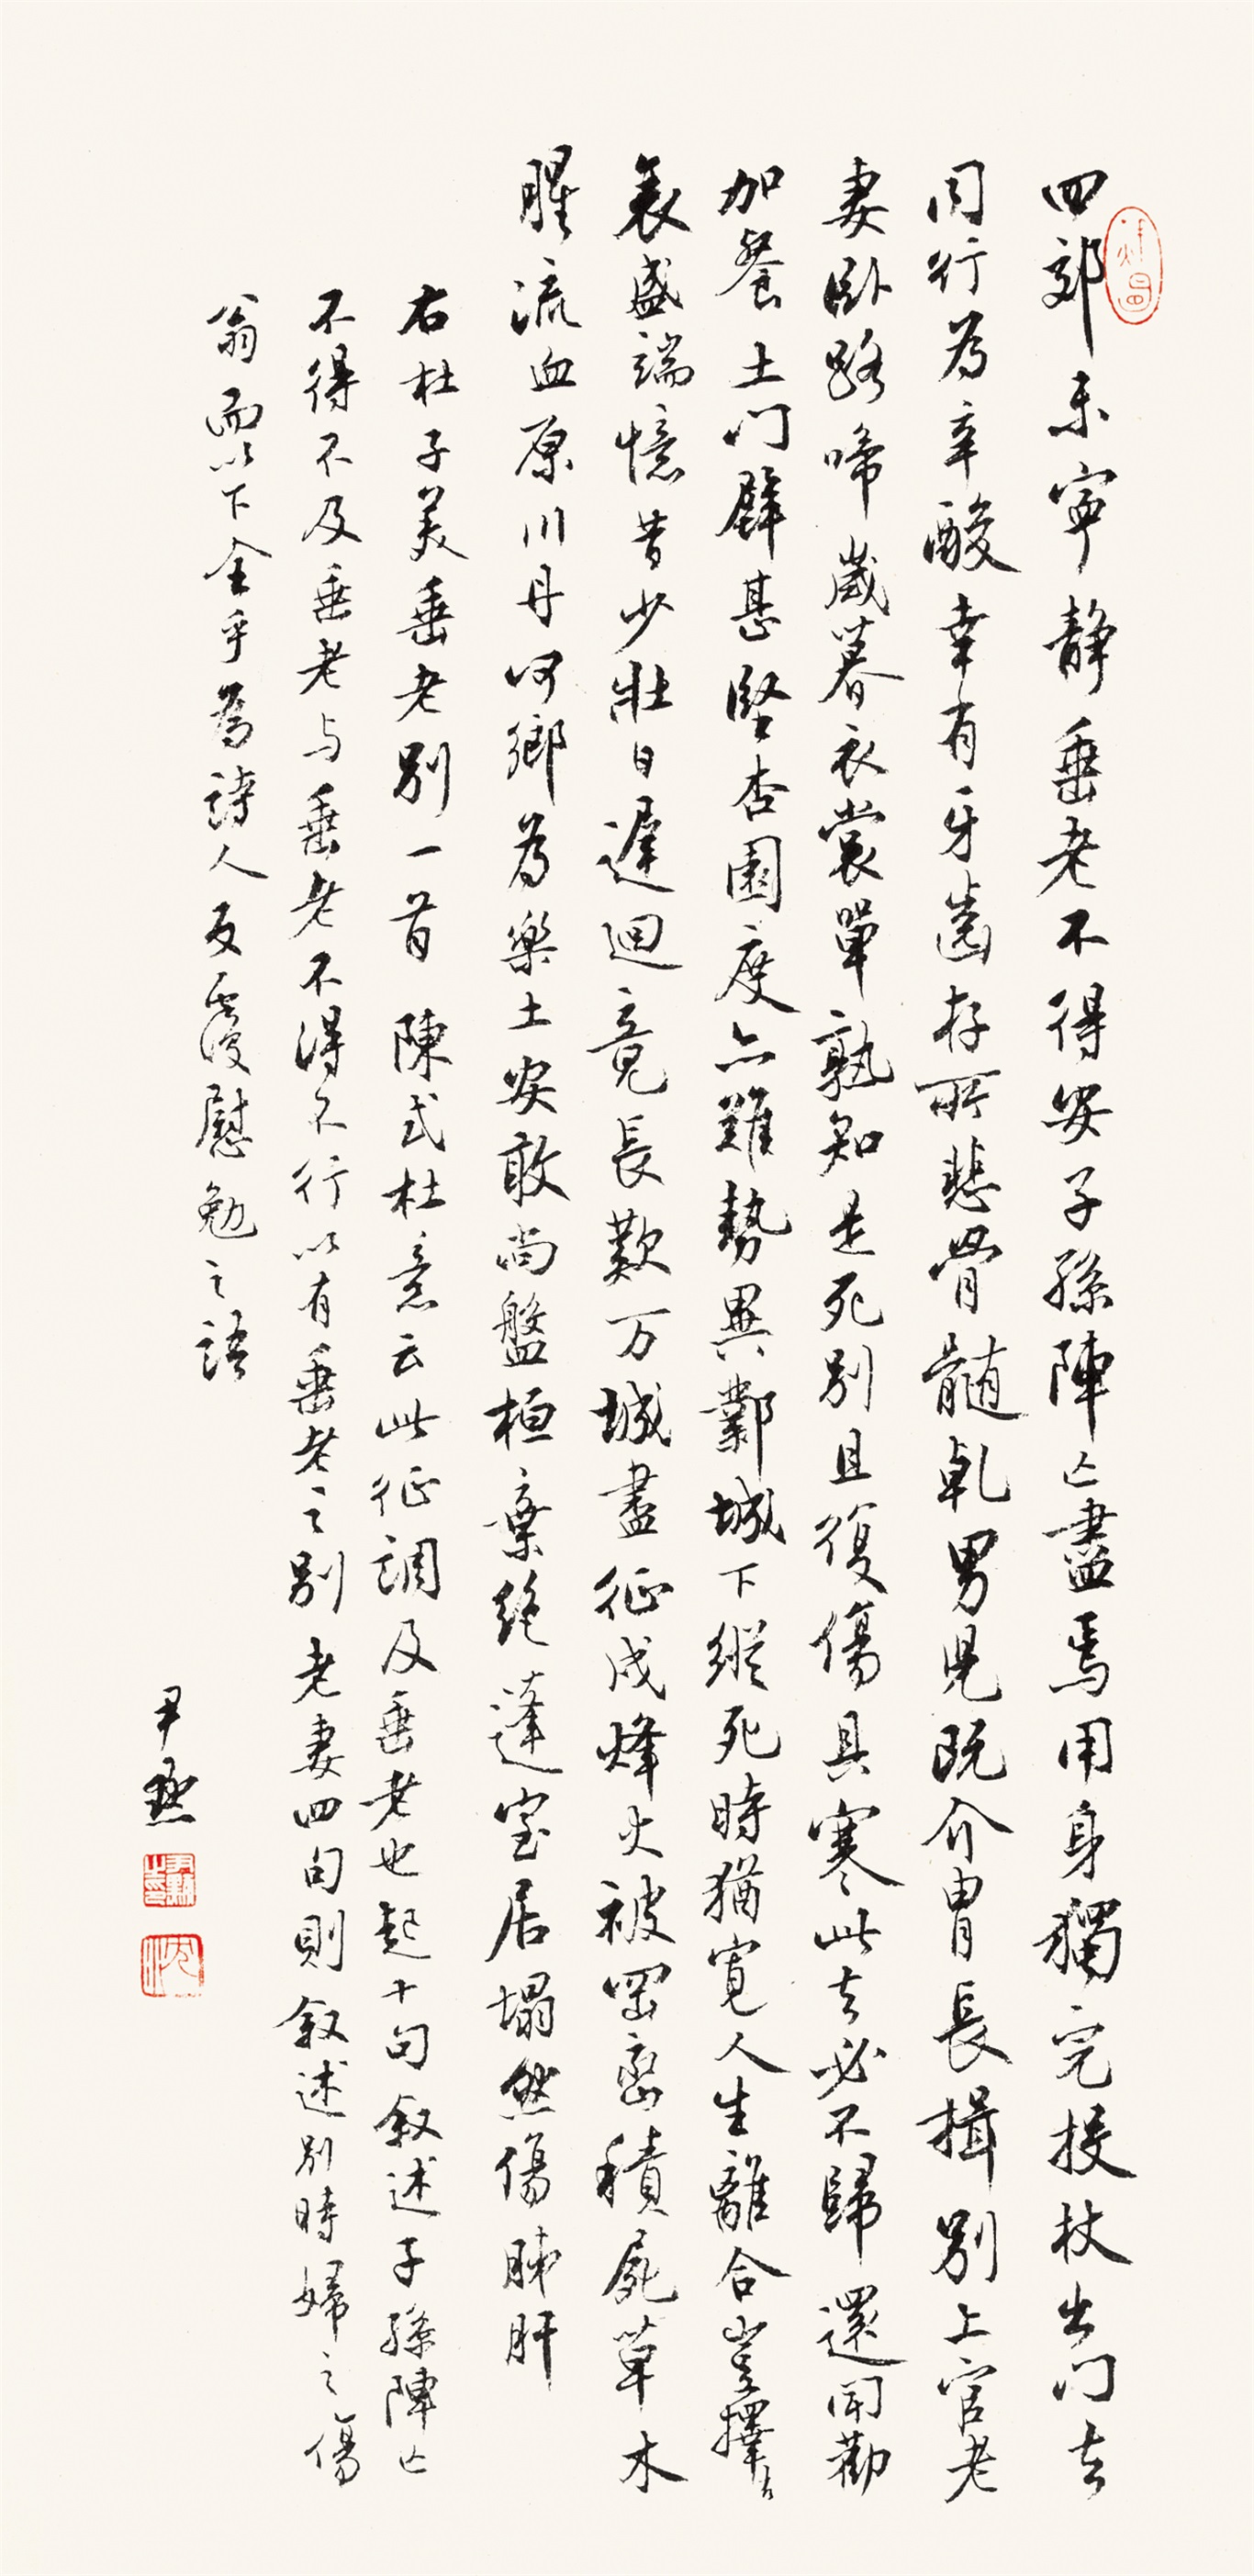 四郊未寧静垂老不得安子孫陣亡盡焉用身獨完投杖出门去
同行為辛酸幸有牙齒存所悲骨髓乾男児既介胄長揖別上官老
妻卧路啼歲暮衣裳單孰知是死別且復傷其寒此去必不歸還聞勸
加餐土门壁甚堅杏園度亦難勢異鄴城下縱死時猶寬人生離合豈擇
衰盛端憶昔少壯日遲迴竟長歎万城盡征戍烽火被岡巒積屍草木
腥流血原川丹何鄉為樂土安敢尚盤桓棄絶蓬室居塌然傷肺肝
右杜子美垂老別一首 陳式杜意云此征調及垂老也起十句叙述子孫陣亡
不得不及垂老与垂老不得不行以有垂老之別老妻四句則叙述別時婦之傷
翁而以下全乎為詩人反覆慰勉之語
尹默